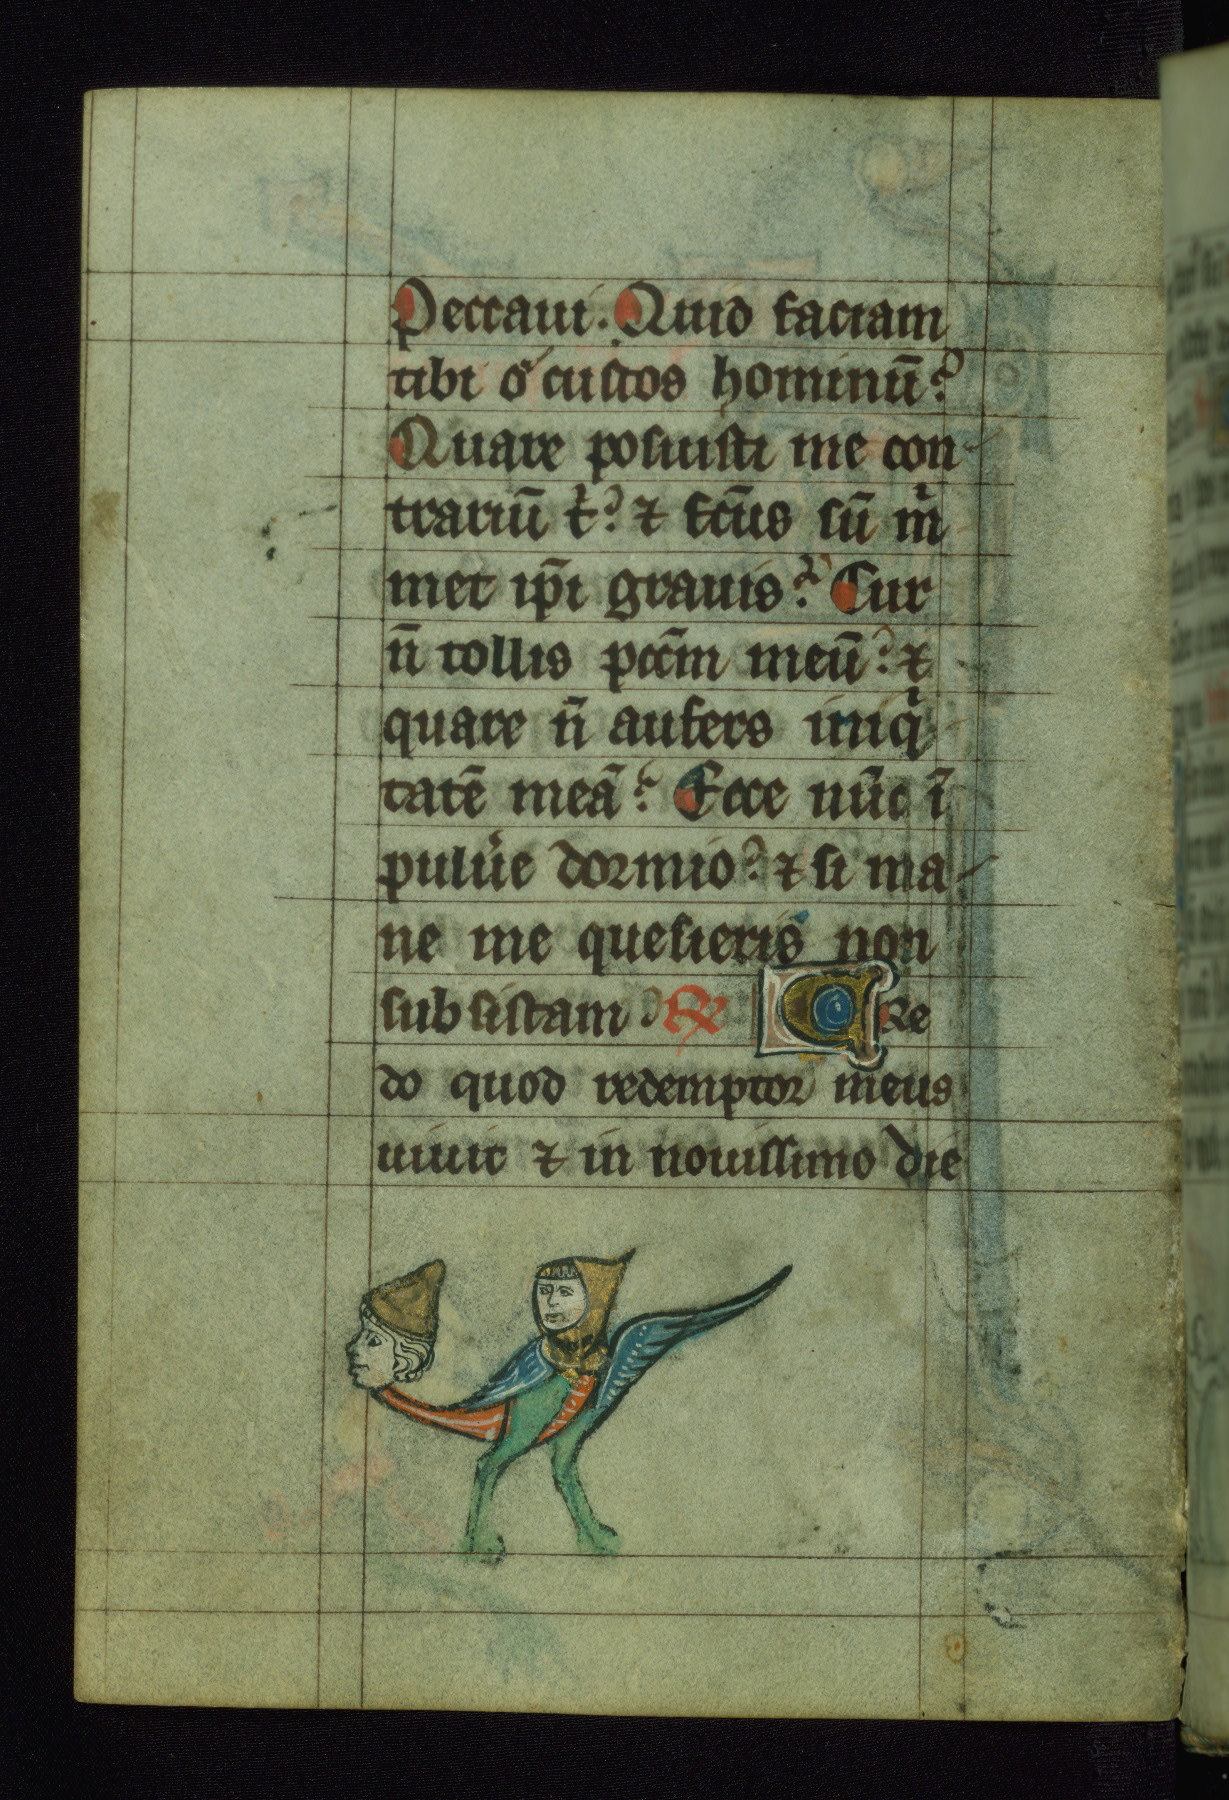 Peccaui. Quid faciam
tibi o custos hominū?
Quare posuisti me con
trariū t̄? ⁊ fc̄us sū m̄
met ip̄i grauis? Cur
n̄ tollis pcc̄m meū? ⁊
quare n̄ aufers iniq̄
tatē meā? Ecce nūc ī
puluʼe dormio? ⁊ si ma
ne me quesieris non
subsistam? ℞ CRe
do quod redemptor meus
uiuit ⁊ in nouissimo die